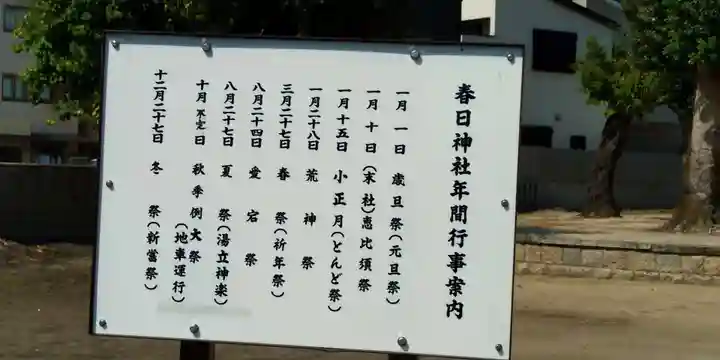 春日神社年間行事案内
一月一日 歳旦祭(元旦祭)
一月十日(末社)恵比須祭
一月十五日 小正月(とんど祭)
一月二十八日 荒神祭
三月二十七日 春祭(祈年祭)
八月二十四日 愛宕祭
八月二十七日 夏祭(湯立神楽)
十月不定日 秋季例大祭
(地車運行)
十二月二十七日 冬祭(新嘗祭)